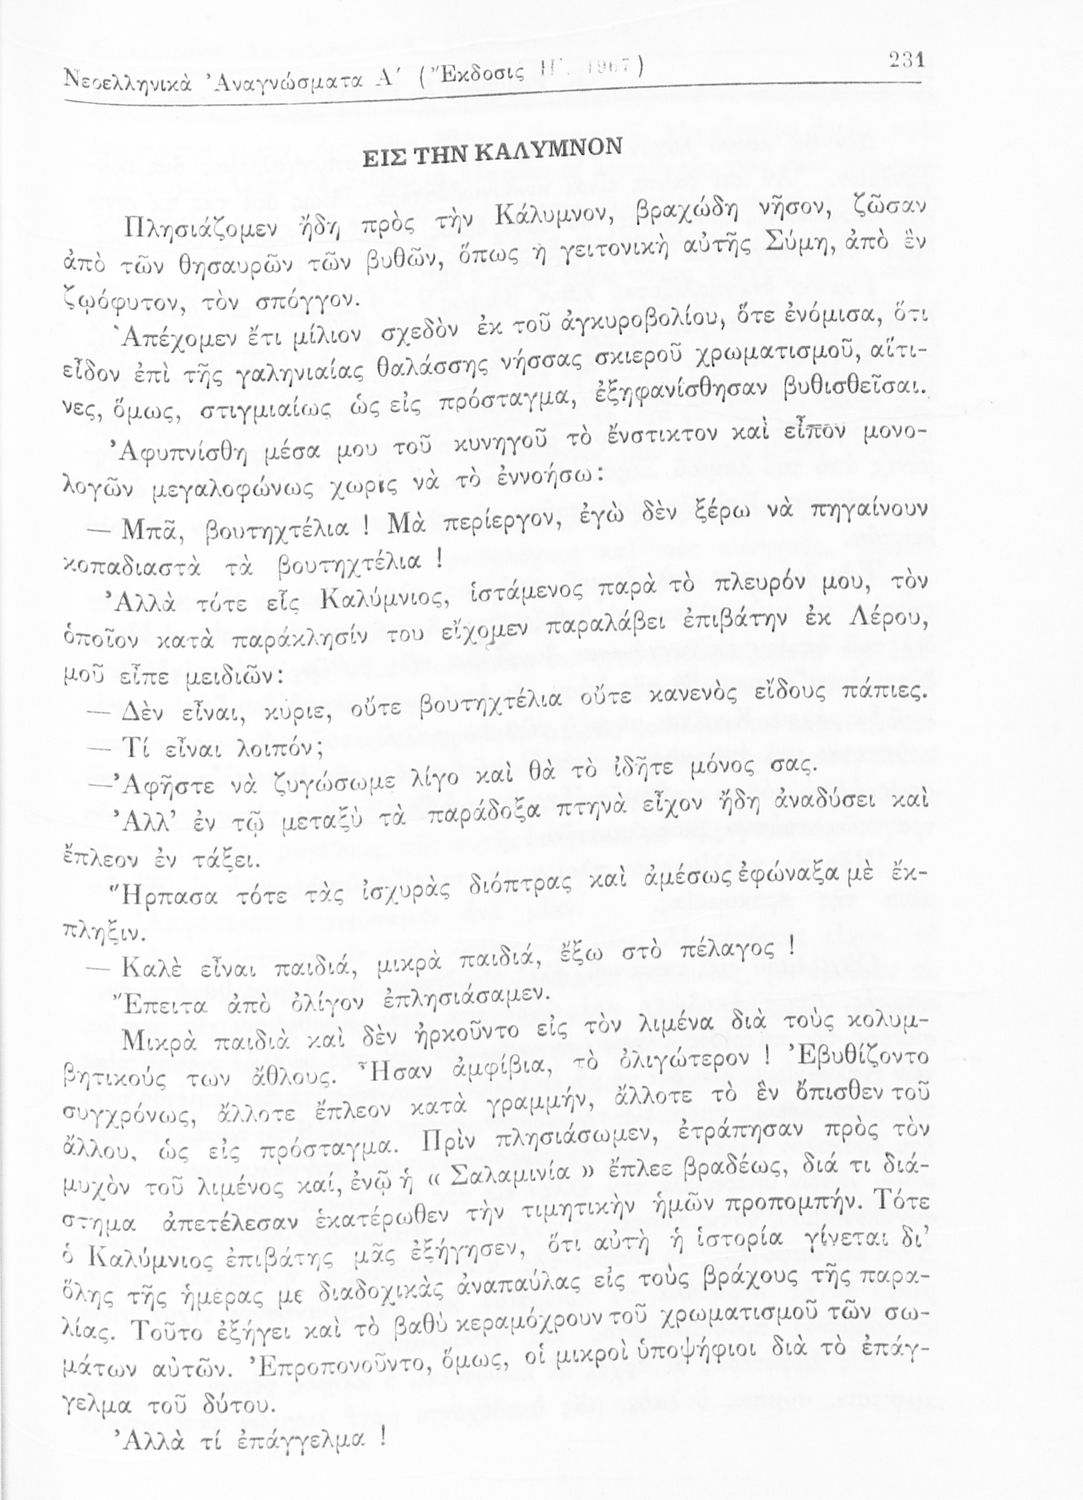 Νεοελληνικὰ Ἀναγνώσματα Α΄ (Ἔκδοσις Η΄. 1967) 231
ΕΙΣ ΤΗΝ ΚΑΛΥΜΝΟΝ
Πλησιάζομεν ἤδη πρὸς τὴν Κάλυμνον, βραχώδη νῆσον, ζῶσαν
ἀπὸ τῶν θησαυρῶν τῶν βυθῶν, ὅπως ἡ γειτονικὴ αὐτῆς Σύμη, ἀπὸ ἓν
ζῳόφυτον, τὸν σπόγγον.
Ἀπέχομεν ἔτι μίλιον σχεδὸν ἐκ τοῦ ἀγκυροβολίου, ὅτε ἐνόμισα, ὅτι
εἶδον ἐπὶ τῆς γαληνιαίας θαλάσσης νήσσας σκιεροῦ χρωματισμοῦ, αἵτι-
νες, ὅμως, στιγμιαίως ὡς εἰς πρόσταγμα, ἐξηφανίσθησαν βυθισθεῖσαι.
Ἀφυπνίσθη μέσα μου τοῦ κυνηγοῦ τὸ ἔνστικτον καὶ εἶπον μονο-
λογῶν μεγαλοφώνως χωρὶς νὰ τὸ ἐννοήσω:
— Μπᾶ, βουτηχτέλια ! Μὰ περίεργον, ἐγὼ δὲν ξέρω νὰ πηγαίνουν
κοπαδιαστὰ τὰ βουτηχτέλια !
Ἀλλὰ τότε εἷς Καλύμνιος, ἱστάμενος παρὰ τὸ πλευρόν μου, τὸν
ὁποῖον κατὰ παράκλησίν του εἴχομεν παραλάβει ἐπιβάτην ἐκ Λέρου,
μοῦ εἶπε μειδιῶν:
— Δὲν εἶναι, κύριε, οὔτε βουτηχτέλια οὔτε κανενὸς εἴδους πάπιες.
— Τί εἶναι λοιπόν;
—Ἀφῆστε νὰ ζυγώσωμε λίγο καὶ θὰ τὸ ἰδῆτε μόνος σας.
Ἀλλ’ ἐν τῷ μεταξὺ τὰ παράδοξα πτηνὰ εἶχον ἤδη ἀναδύσει καὶ
ἔπλεον ἐν τάξει.
Ἥρπασα τότε τὰς ἰσχυρὰς διόπτρας καὶ ἀμέσως ἐφώναξα μὲ ἔκ-
πληξιν.
— Καλὲ εἶναι παιδιά, μικρὰ παιδιά, ἔξω στὸ πέλαγος !
Ἔπειτα ἀπὸ ὀλίγον ἐπλησιάσαμεν.
Μικρὰ παιδιὰ καὶ δὲν ἠρκοῦντο εἰς τὸν λιμένα διὰ τοὺς κολυμ-
βητικούς των ἄθλους. Ἦσαν ἀμφίβια, τὸ ὀλιγώτερον ! Ἐβυθίζοντο
συγχρόνως, ἄλλοτε ἔπλεον κατὰ γραμμήν, ἄλλοτε τὸ ἓν ὄπισθεν τοῦ
ἄλλου, ὡς εἰς πρόσταγμα. Πρὶν πλησιάσωμεν, ἐτράπησαν πρὸς τὸν
μυχὸν τοῦ λιμένος καί, ἐνῷ ἡ « Σαλαμινία » ἔπλεε βραδέως, διά τι διά-
στημα ἀπετέλεσαν ἑκατέρωθεν τὴν τιμητικὴν ἡμῶν προπομπήν. Τότε
ὁ Καλύμνιος ἐπιβάτης μᾶς ἐξήγησεν, ὅτι αὐτὴ ἡ ἱστορία γίνεται δι’
ὅλης τῆς ἡμέρας με διαδοχικὰς ἀναπαύλας εἰς τοὺς βράχους τῆς παρα-
λίας. Τοῦτο ἐξήγει καὶ τὸ βαθὺ κεραμόχρουν τοῦ χρωματισμοῦ τῶν σω-
μάτων αὐτῶν. Ἐπροπονοῦντο, ὅμως, οἱ μικροὶ ὑποψήφιοι διὰ τὸ ἐπάγ-
γελμα τοῦ δύτου.
Ἀλλὰ τί ἐπάγγελμα !